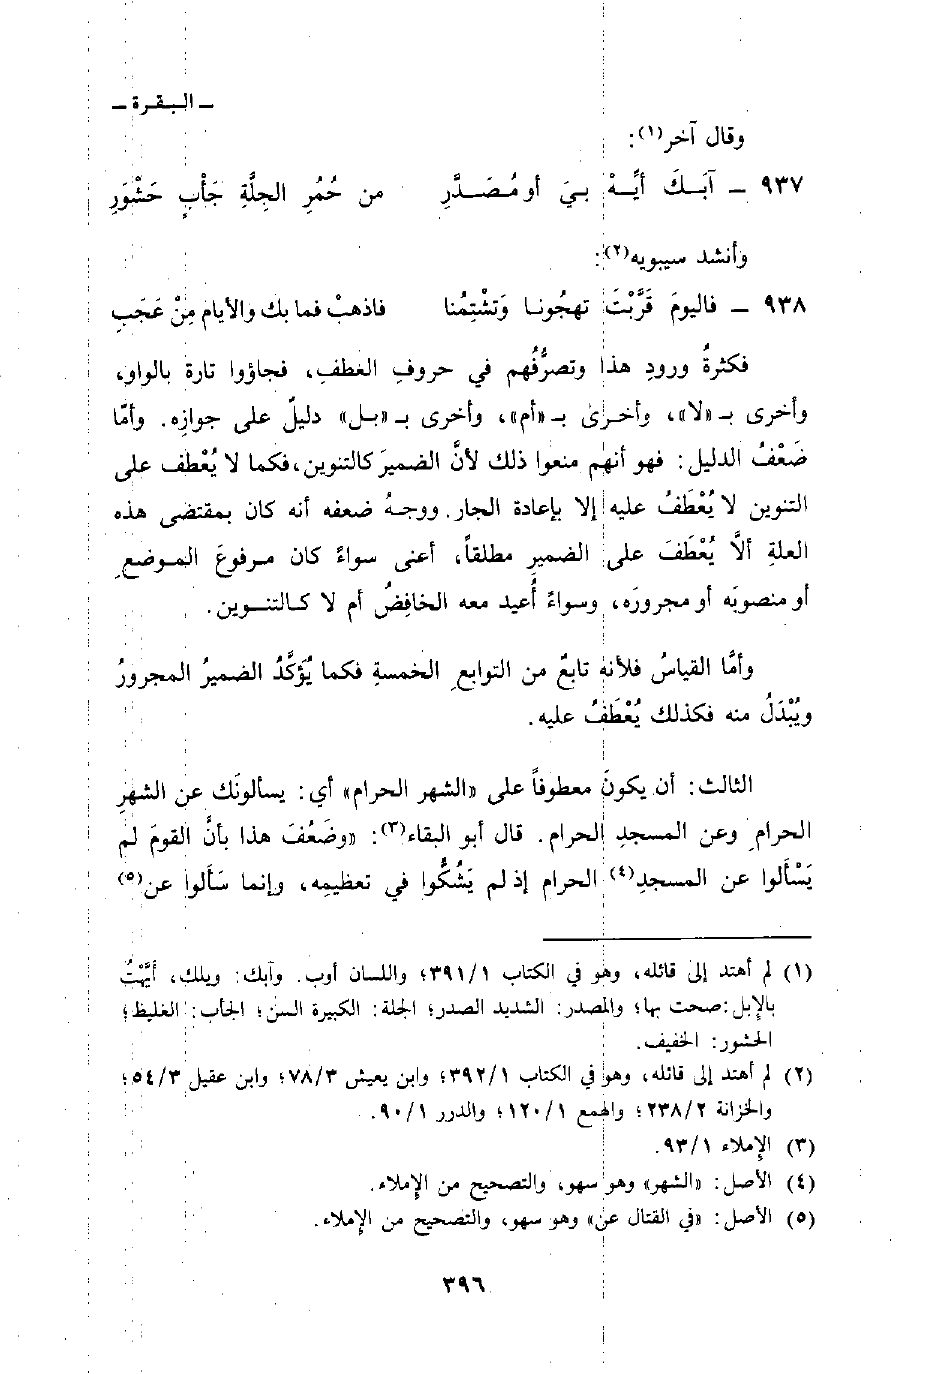 ـ البقرة ـ
وقال آخر(١):
٩٣٧ ـ آبَـكَ أيِّـهْ بيَ أو مُـصَـدَّرِ من حُمُرِ الجِلَّةِ جَأْبٍ حَشْوَرِ
وأنشد سيبويه(٢):
٩٣٨ ـ فاليومَ قَرَّبْتَ تهجُونـا وَتشْتِمُنا فاذهبْ فما بك والأيام مِنْ عَجَبِ
فكثرةُ ورودِ هذا وتصرُّفُهم في حروفِ العطفِ، فجاؤوا تارة بالواو،
وأخرى بـ «لا»، وأخـرىٰ بـ «أم»، وأخرى بـ «بـل» دليلٌ على جوازِه. وأمَّا
ضَعْفُ الدليل: فهو أنهم منعوا ذلك لأنَّ الضميرَ كالتنوين، فكما لا يُعْطف على
التنوين لا يُعْطَفُ عليه إلا بإعادة الجار. ووجـهُ ضعفه أنه كان بمقتضى هذه
العلةِ ألاَّ يُعْطَفَ على الضميرِ مطلقاً، أعني سواءً كان مـرفوعَ المـوضعِ
أو منصوبَه أو مجرورَه، وسواءً أُعيد معه الخافِضُ أم لا كـالتنـوين.
وأمَّا القياسُ فلأنه تابعٌ من التوابعِ الخمسةِ فكما يُؤَكَّدُ الضميرُ المجرورُ
ويُبْدَلُ منه فكذلك يُعْطَفُ عليه.
الثالث: أن يكونَ معطوفاً على «الشهر الحرام» أي: يسألونَك عن الشهرِ
الحرامِ وعن المسجدِ الحرام. قال أبو البقاء(٣): «وضَعُفَ هذا بأنَّ القومَ لم
يَسْأَلوا عن المسجدِ(٤) الحرام إذ لم يَشُكُّوا في تعظيمِه، وإنما سَألوا عن(٥)
(١) لم أهتد إلى قائله، وهو في الكتاب ٣٩١/١؛ واللسان أوب. وآبك: ويلك، أَيَّهْتُ
بالإبل: صحت بها؛ والمصدر: الشديد الصدر؛ الجلة: الكبيرة السن؛ الجأب: الغليظ؛
الحشور: الخفيف.
(٢) لم أهتد إلى قائله، وهو في الكتاب ٣٩٢/١؛ وابن يعيش ٧٨/٣؛ وابن عقيل ٥٤/٣؛
والخزانة ٢٣٨/٢؛ والهمع ١٢٠/١؛ والدرر ٩٠/١.
(٣) الإملاء ٩٣/١.
(٤) الأصل: «الشهر» وهو سهو، والتصحيح من الإملاء.
(٥) الأصل: «في القتال عن» وهو سهو، والتصحيح من الإملاء.
٣٩٦